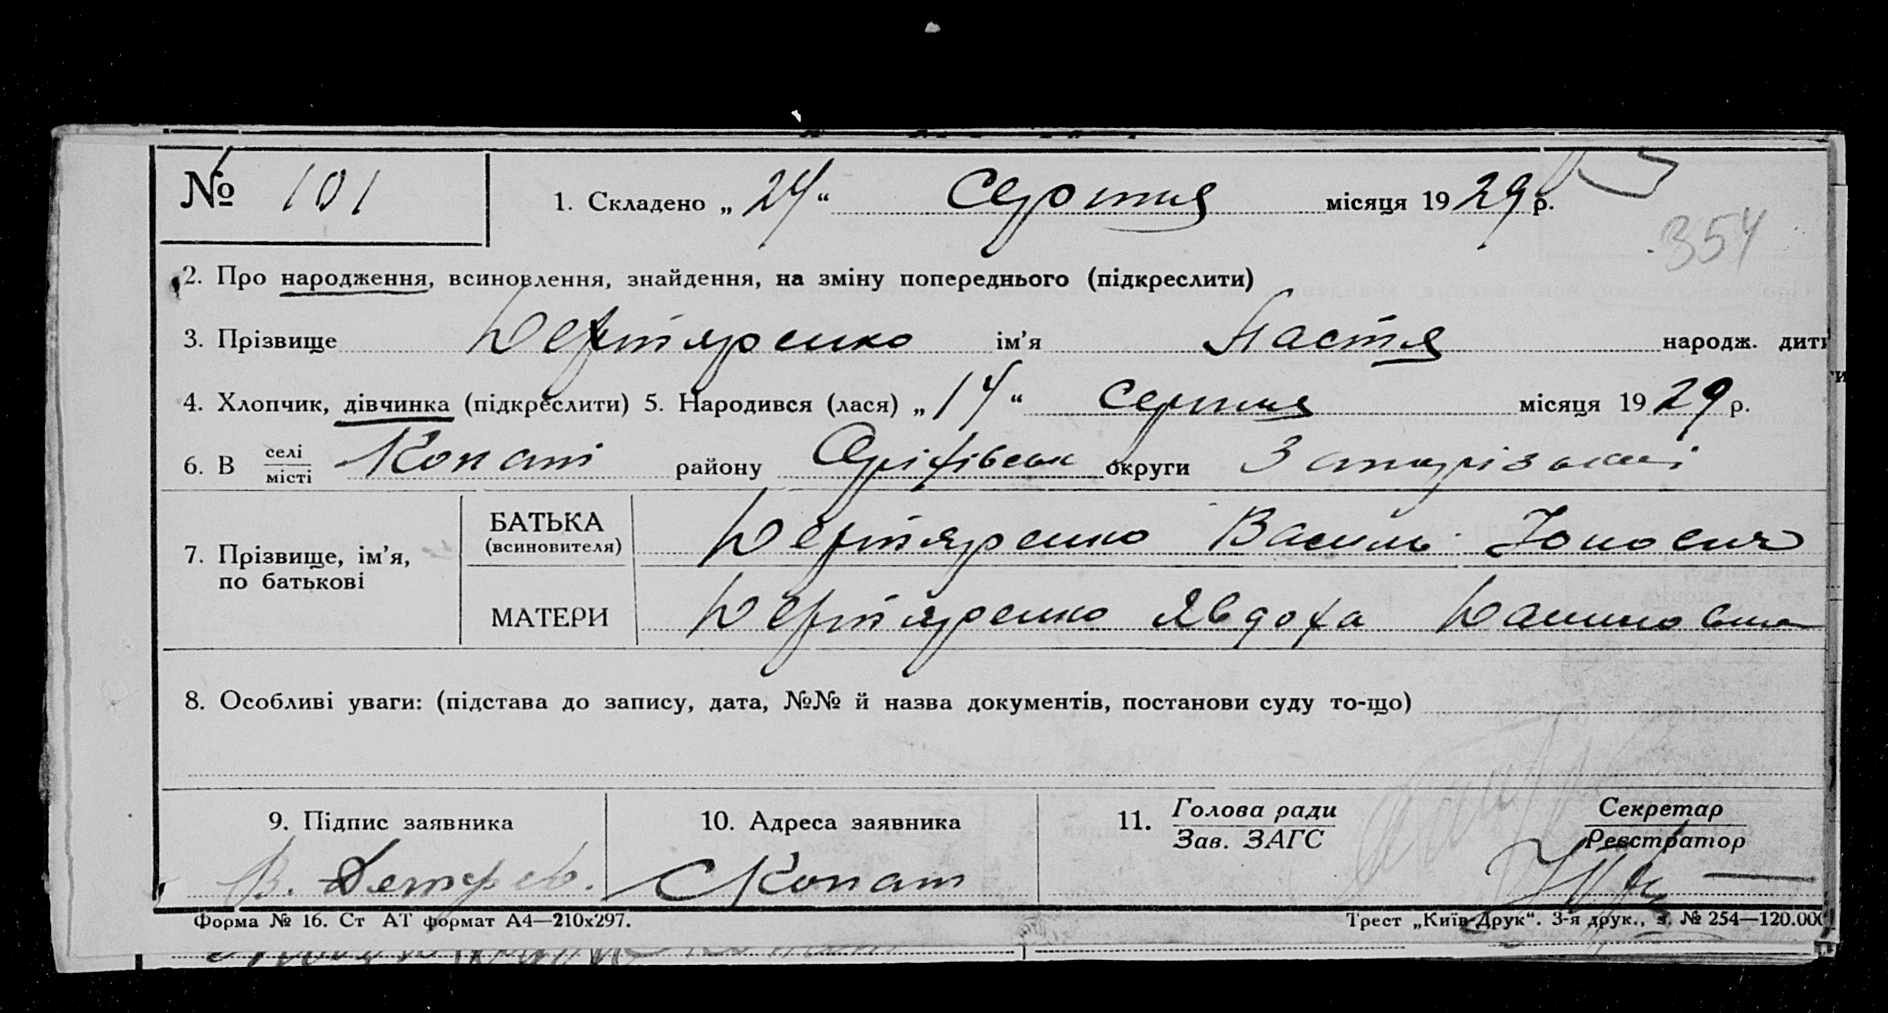 № 101 1. Складено „ 24 “ Серпня місяця 19 29 р.
354
2. Про народження, всиновлення, знайдення, на зміну попереднього (підкреслити)
3. Прізвище Дегтяренко ім’я Настя народж. дити
4. Хлопчик, дівчинка (підкреслити) 5. Народився (лася) „ 14 “ серпня місяця 19 29 р.
6. В селі місті Копані району Оріхівськ округи Запорізької
7. Прізвище, ім’я, по батькові
БАТЬКА (всиновителя) Дегтяренко Василь
МАТЕРИ Дегтяренко Явдоха Даниловна
8. Особливі уваги: (підстава до запису, дата, №№ й назва документів, постанови суду то-що)
9. Підпис заявника 10. Адреса заявника 11. Голова ради Зав. ЗАГС Секретар Реєстратор
В.
Форма № 16. Ст АТ формат А4—210х297. Трест „Київ-Друк“. 3-я друк., з. № 254—120.000